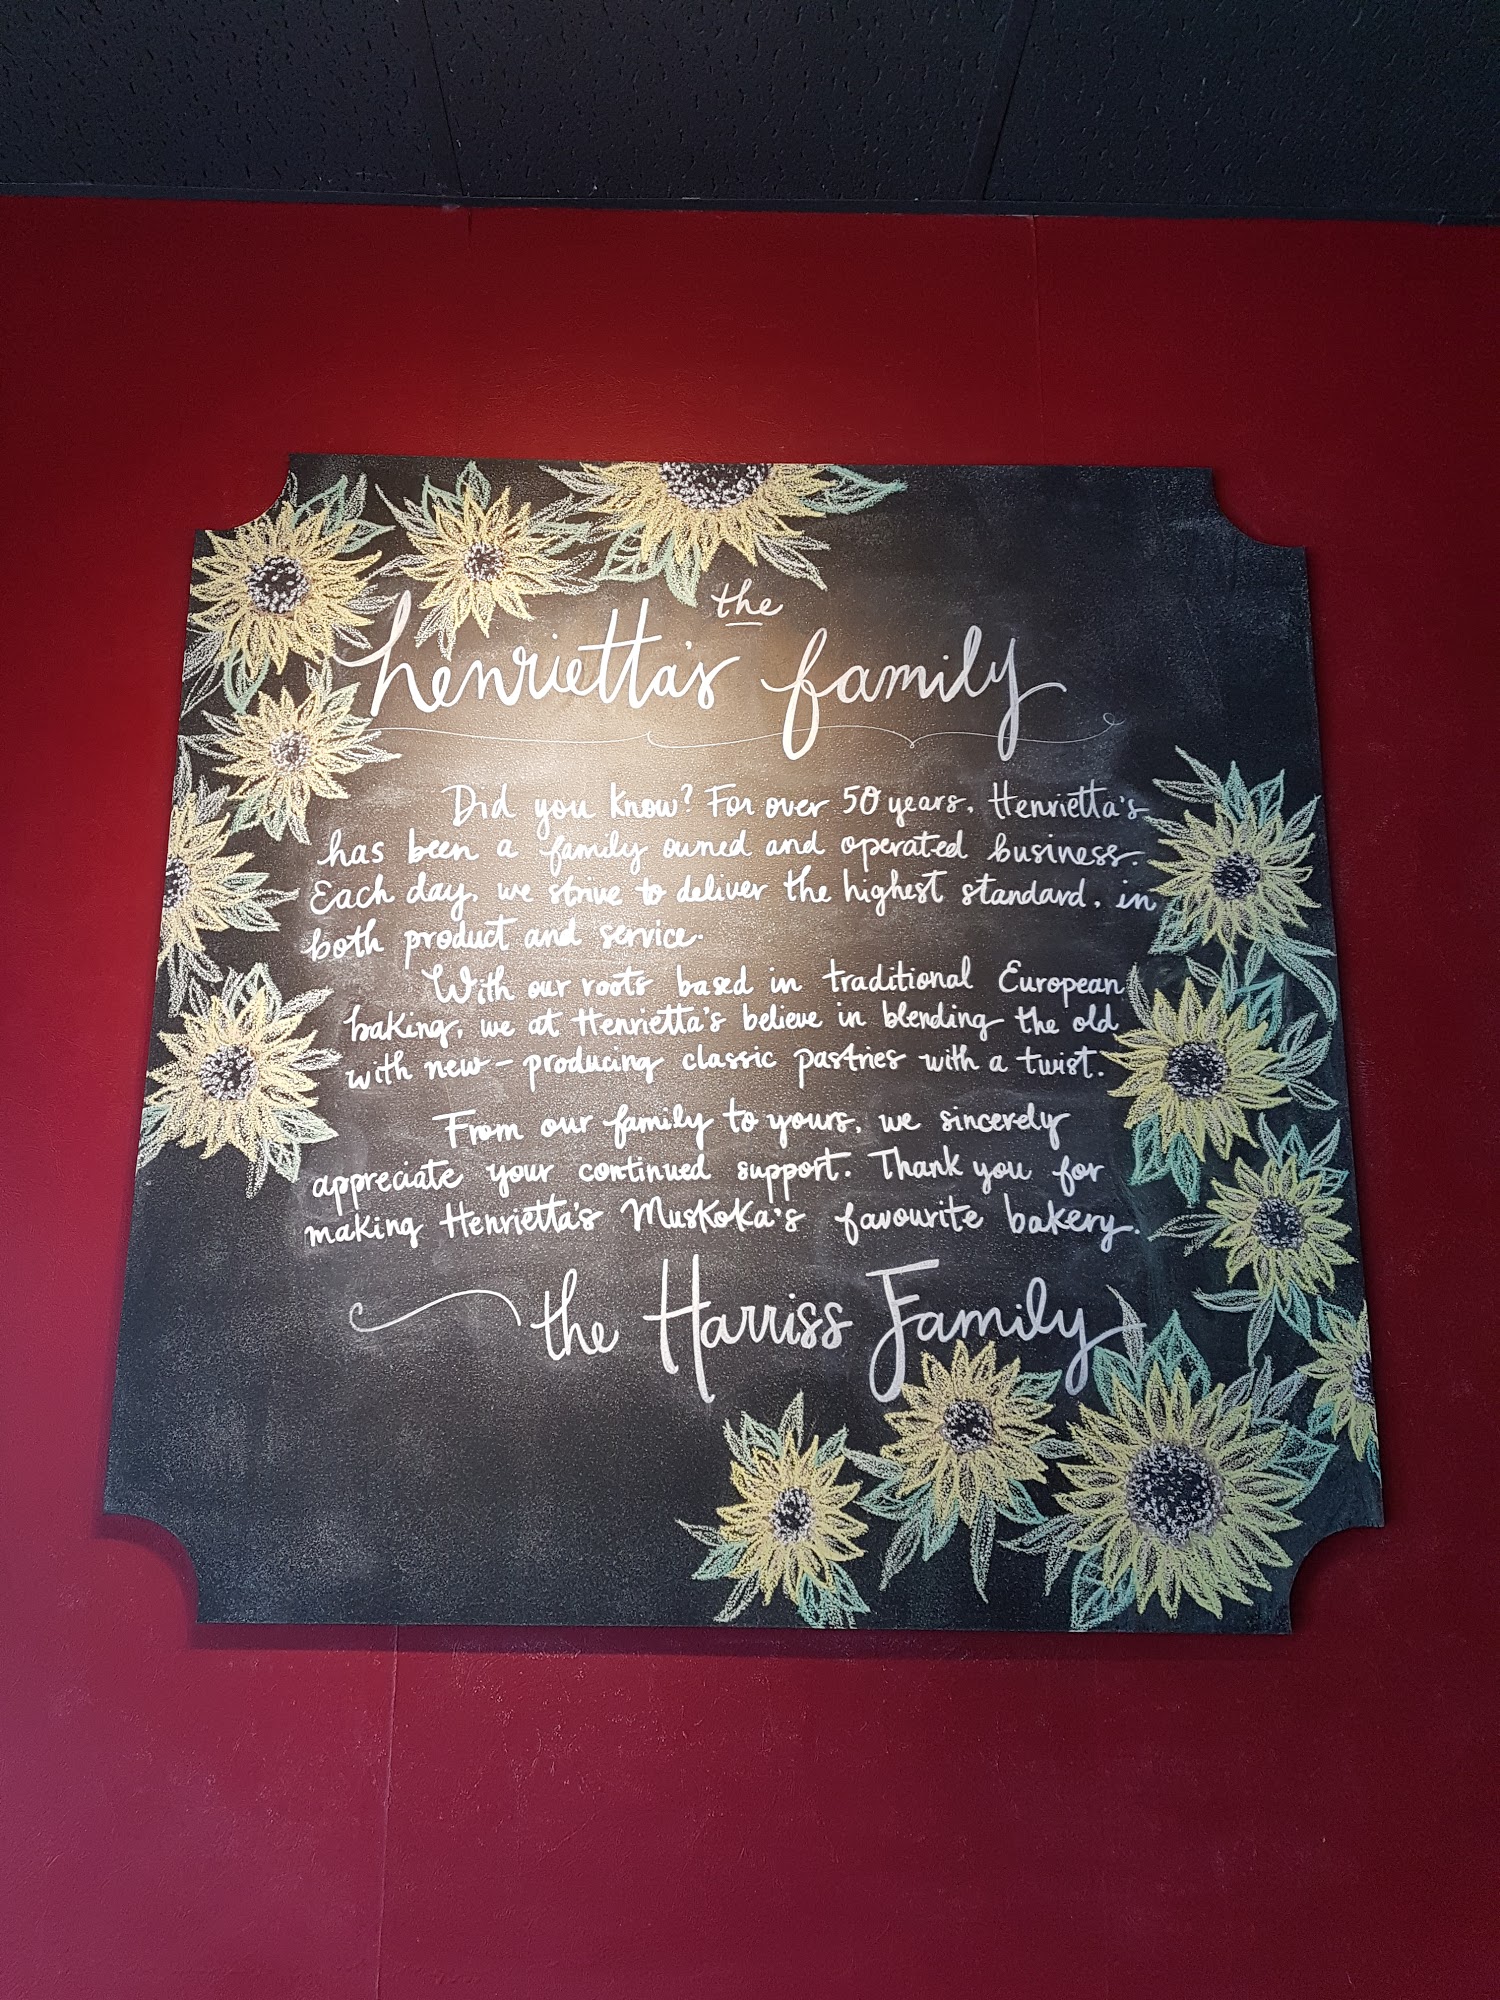 henrietta's the family
Did you know? For over 50 years, Henrietta's
has been a family owned and operated business.
Each day, we strive to deliver the highest standard, in
both product and service.
With our roots based in traditional European
baking, we at Henrietta's believe in blending the old
with new - producing classic pastries with a twist.
From our family to yours, we sincerely
appreciate your continued support. Thank you for
making Henrietta's Muskoka's favourite bakery.
the Harriss Family